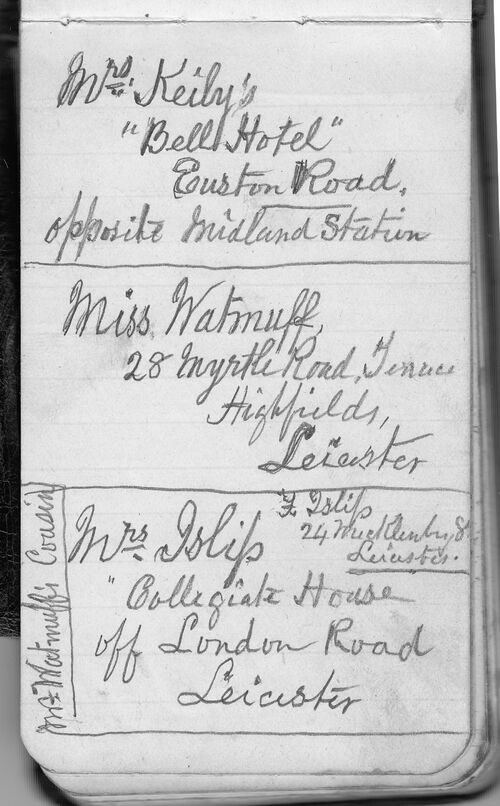 Mrs. Keiby's
"Bell Hotel"
Euston Road,
opposite Midland Station
Miss Watmuff,
28 Myrtle Road, Terrace
Highfields,
Leicester
Mrs Islip
"Collegiate House
off London Road
Leicester
F. Islip
24 Mecklenby St
Leicester.
Watmuff's Cousin